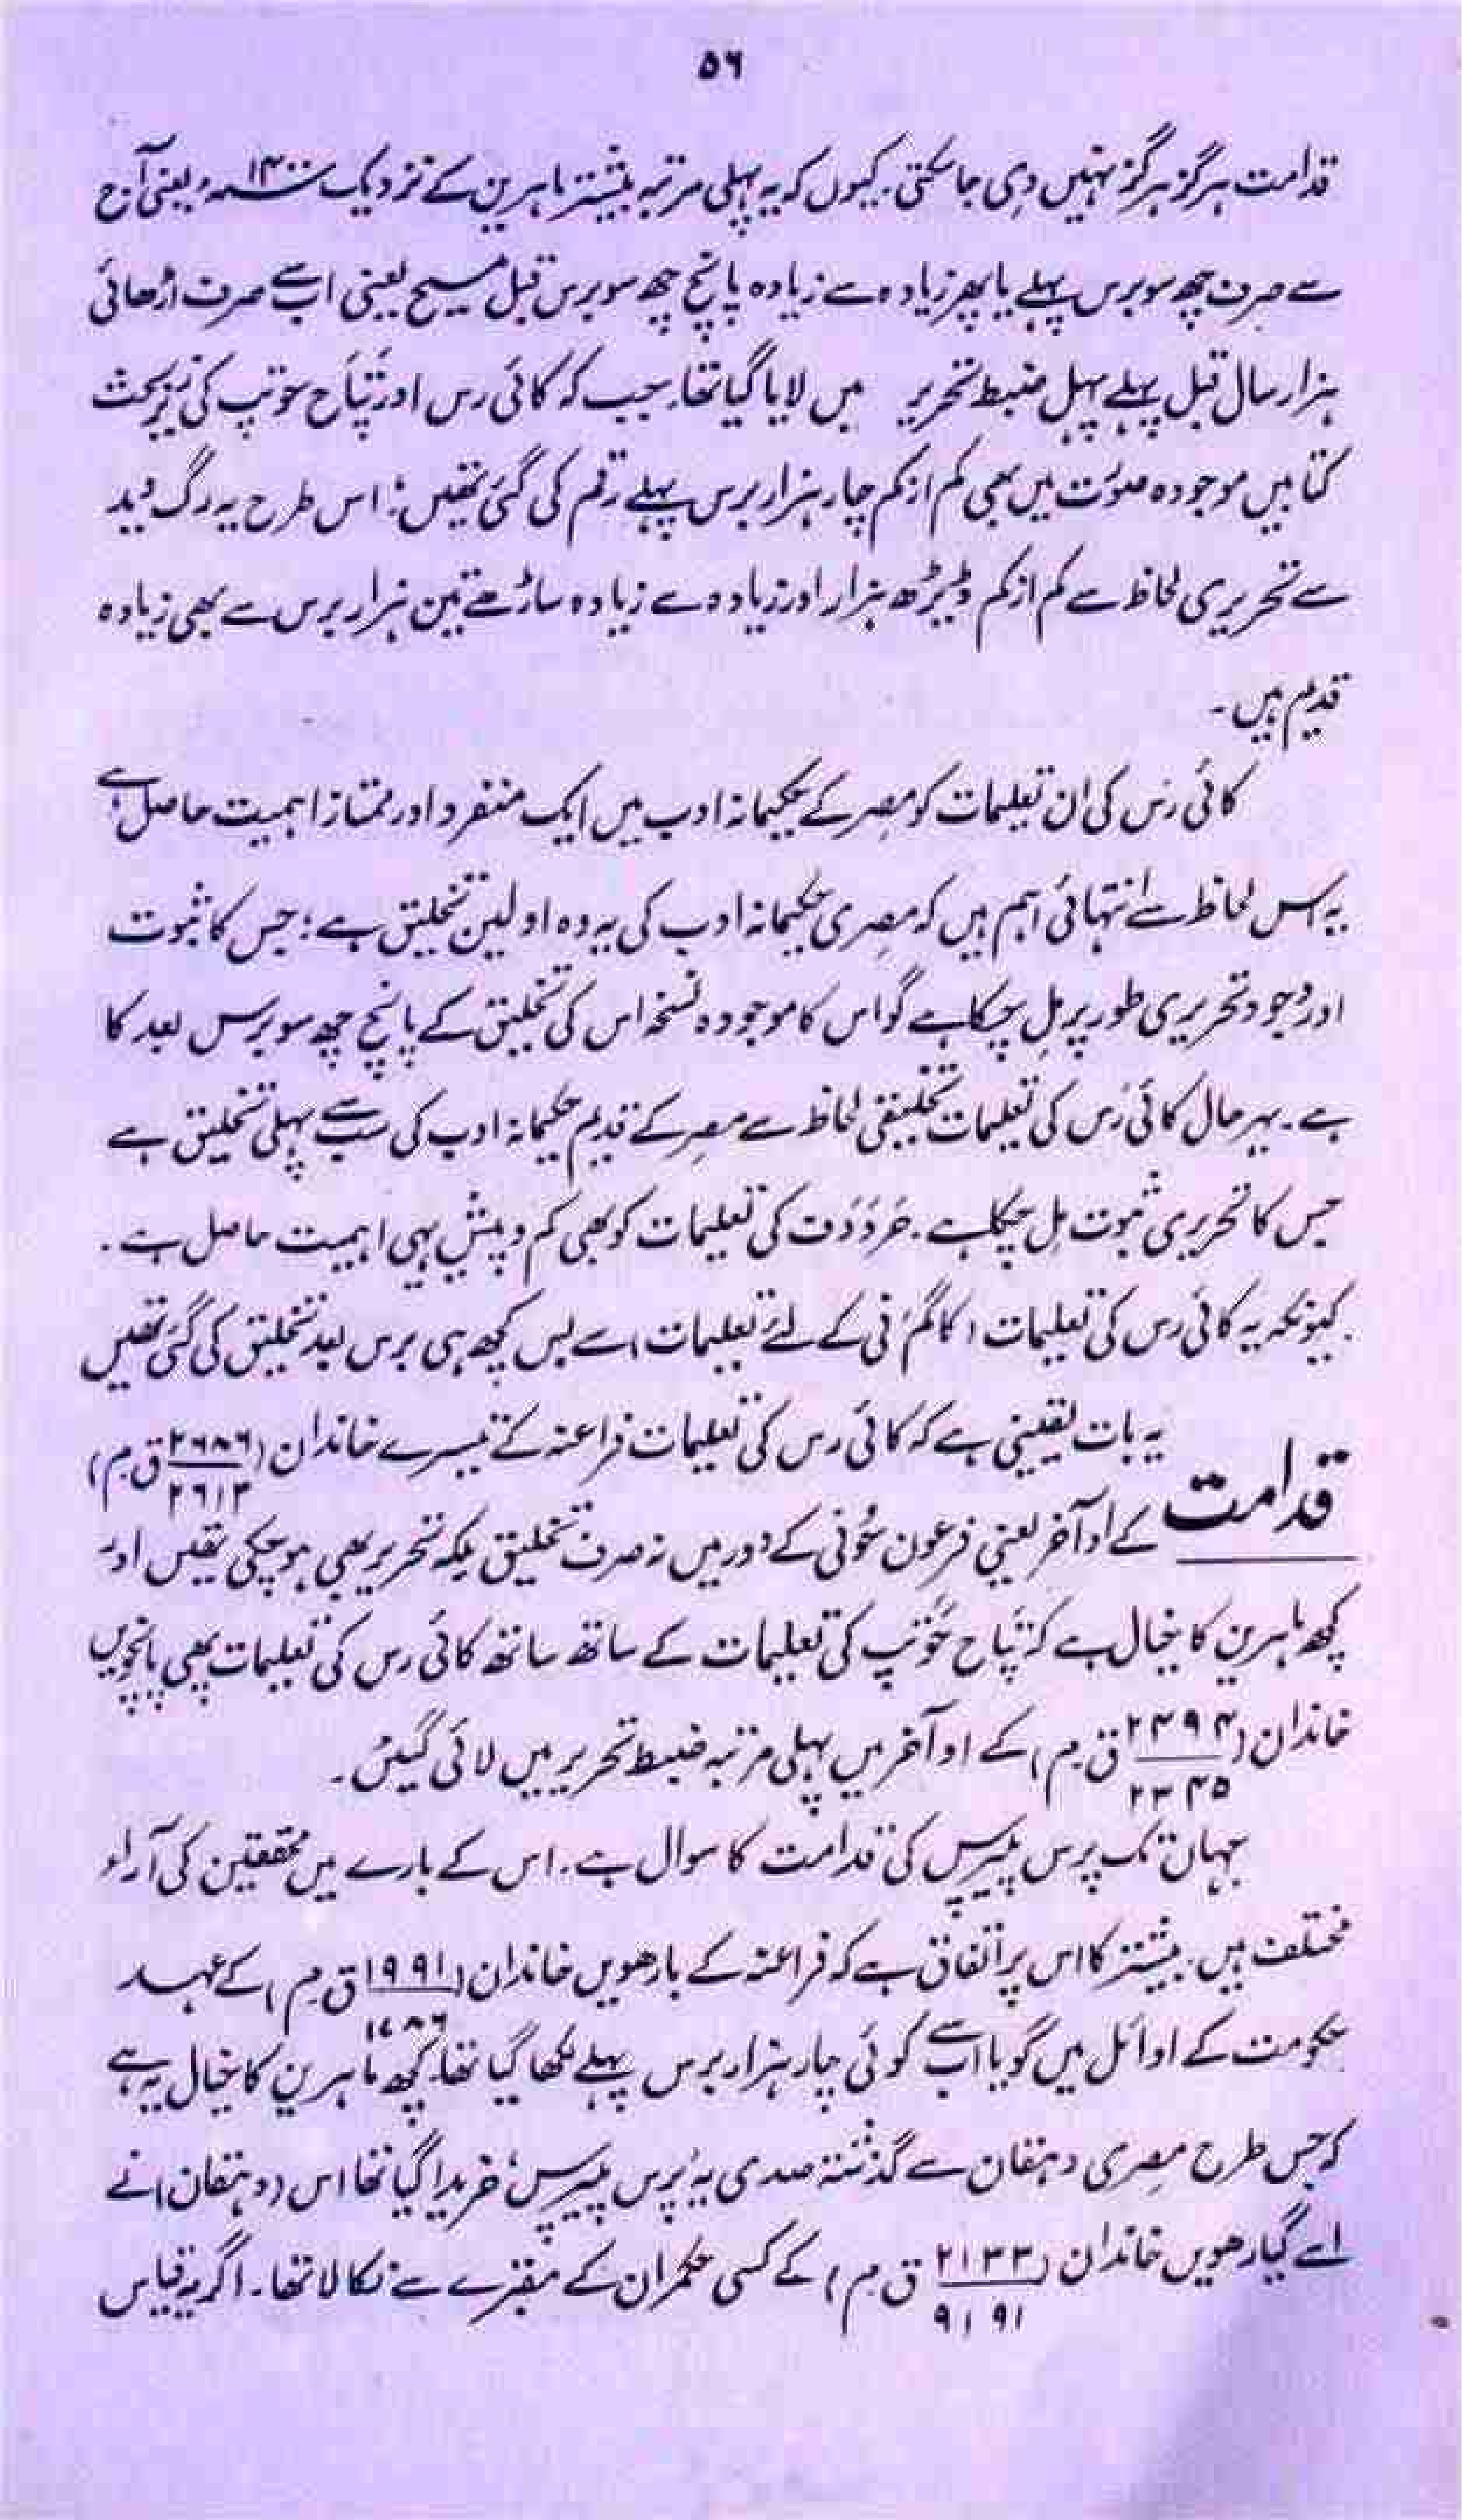 ۵۶
قدامت ہرگز ہرگز نہیں دی جا سکتی۔ کیوں کہ یہ پہلی مرتبہ بیشتر ماہرین کے نزدیک ۱۴۰۰ء یعنی آج
سے صرف چھ سو برس پہلے یا پھر زیادہ سے زیادہ پانچ چھ سو برس قبل مسیح یعنی اب سے صرف اڑھائی
ہزار سال قبل پہلے پہل ضبط تحریر میں لایا گیا تھا۔ جب کہ کائی رس اور پتاح حوتپ کی زیر بحث
کتابیں موجودہ صورت میں بھی کم از کم چار ہزار برس پہلے رقم کی گئی تھیں؛ اس طرح یہ رگ وید
سے تحریری لحاظ سے کم از کم ڈیڑھ ہزار اور زیادہ سے زیادہ ساڑھے تین ہزار برس سے بھی زیادہ
قدیم ہیں۔
کائی رس کی ان تعلیمات کو مصر کے حکیمانہ ادب میں ایک منفرد اور ممتاز اہمیت حاصل ہے
یہ اس لحاظ سے انتہائی اہم ہیں کہ مصری حکیمانہ ادب کی یہ وہ اولین تخلیق ہے؛ جس کا ثبوت
اور وجود تحریری طور پر مل چکا ہے گو اس کا موجودہ نسخہ اس کی تخلیق کے پانچ چھ سو برس بعد کا
ہے۔ بہرحال کائی رس کی تعلیمات تخلیقی لحاظ سے مصر کے قدیم حکیمانہ ادب کی سب سے پہلی تخلیق ہے
جس کا تحریری ثبوت مل چکا ہے۔ حردَدَف کی تعلیمات کو بھی کم و بیش یہی اہمیت حاصل ہے۔
کیونکہ یہ کائی رس کی تعلیمات (کاگم نی کے لئے تعلیمات) سے بس کچھ ہی برس بعد تخلیق کی گئی تھیں
قدامت یہ بات یقینی ہے کہ کائی رس کی تعلیمات فراعنہ کے تیسرے خاندان (۲۶۸۶/۲۶۱۳ ق م)
کے اواخر یعنی فرعون حُونی کے دور میں نہ صرف تخلیق بلکہ تحریر بھی ہو چکی تھیں اور
کچھ ماہرین کا خیال ہے کہ پتاح حوتپ کی تعلیمات کے ساتھ ساتھ کائی رس کی تعلیمات بھی پانچویں
خاندان (۲۴۹۴/۲۳۴۵ ق م) کے اواخر میں پہلی مرتبہ ضبط تحریر میں لائی گئیں۔
جہاں تک پرس پیپرس کی قدامت کا سوال ہے۔ اس کے بارے میں محققین کی آراء
مختلف ہیں۔ بیشتر کا اس پر اتفاق ہے کہ فراعنہ کے بارھویں خاندان (۱۹۹۱/۱۷۸۶ ق م) کے عہد
حکومت کے اوائل میں گویا اب سے کوئی چار ہزار برس پہلے لکھا گیا تھا۔ کچھ ماہرین کا خیال یہ ہے
کہ جس طرح مصری دہقان سے گذشتہ صدی یہ پُرس پیپرس خریدا گیا تھا اس (دہقان) نے
اسے گیارھویں خاندان (۲۱۳۳/۹۱۹۱ ق م) کے کسی حکمران کے مقبرے سے نکالا تھا۔ اگر یہ قیاس